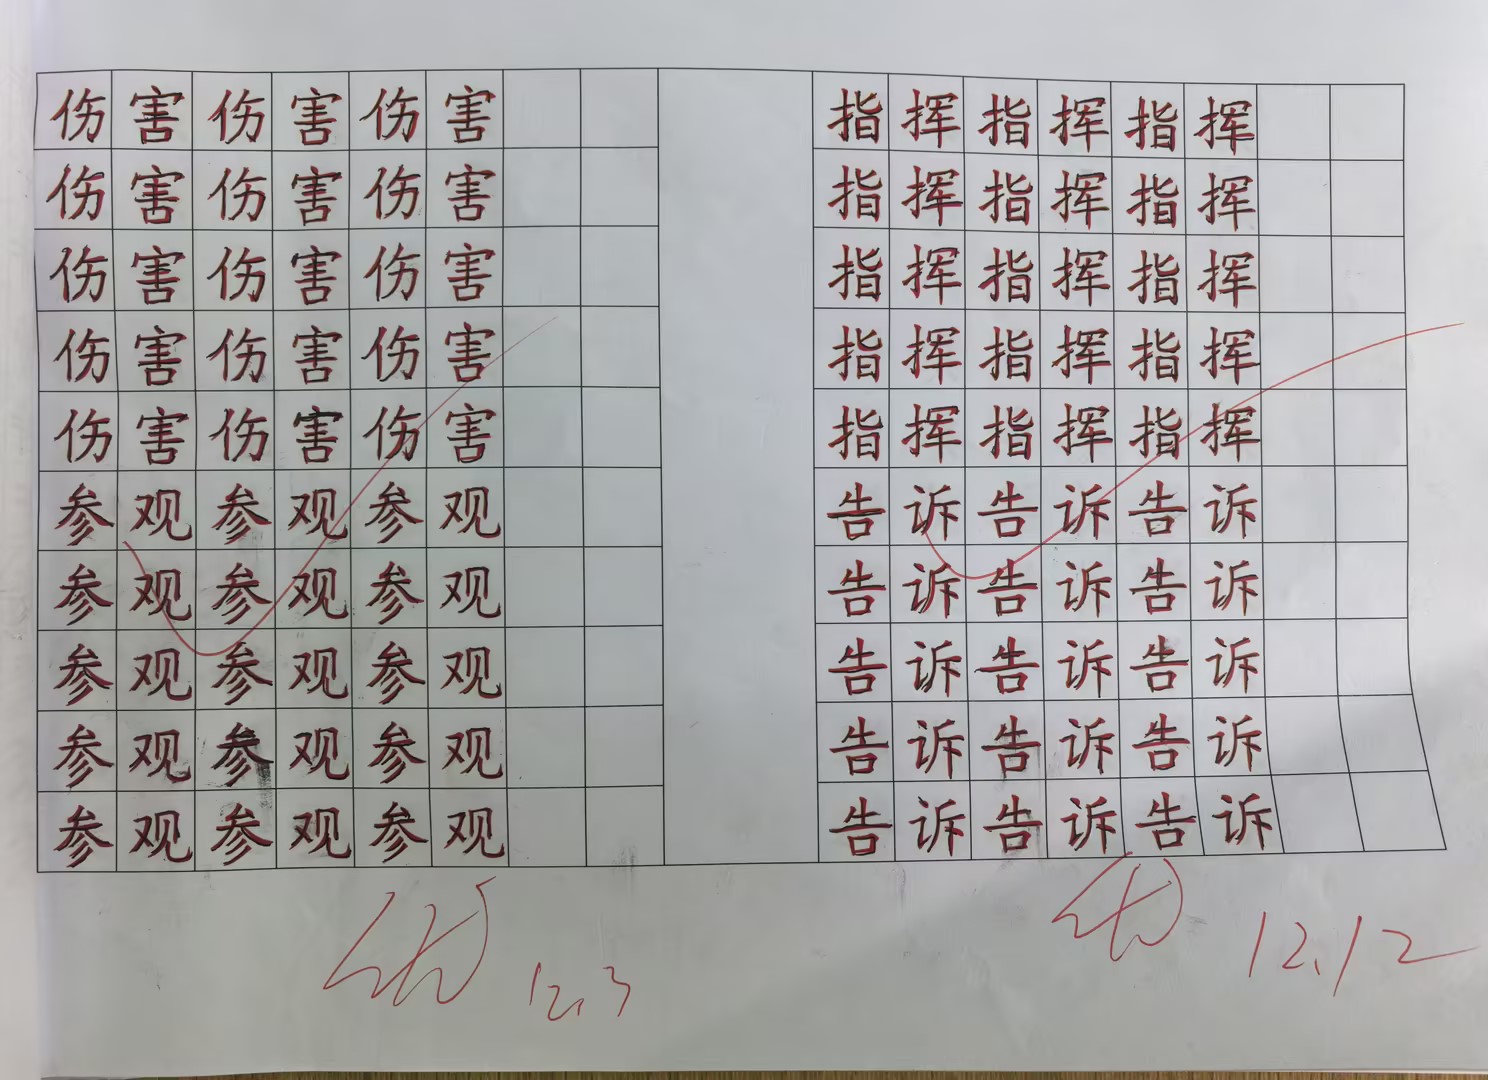 伤害伤害伤害
伤害伤害伤害
伤害伤害伤害
伤害伤害伤害
伤害伤害伤害
参观参观参观
参观参观参观
参观参观参观
参观参观参观
参观参观参观
12.3
指挥指挥指挥
指挥指挥指挥
指挥指挥指挥
指挥指挥指挥
指挥指挥指挥
告诉告诉告诉
告诉告诉告诉
告诉告诉告诉
告诉告诉告诉
告诉告诉告诉
12.12